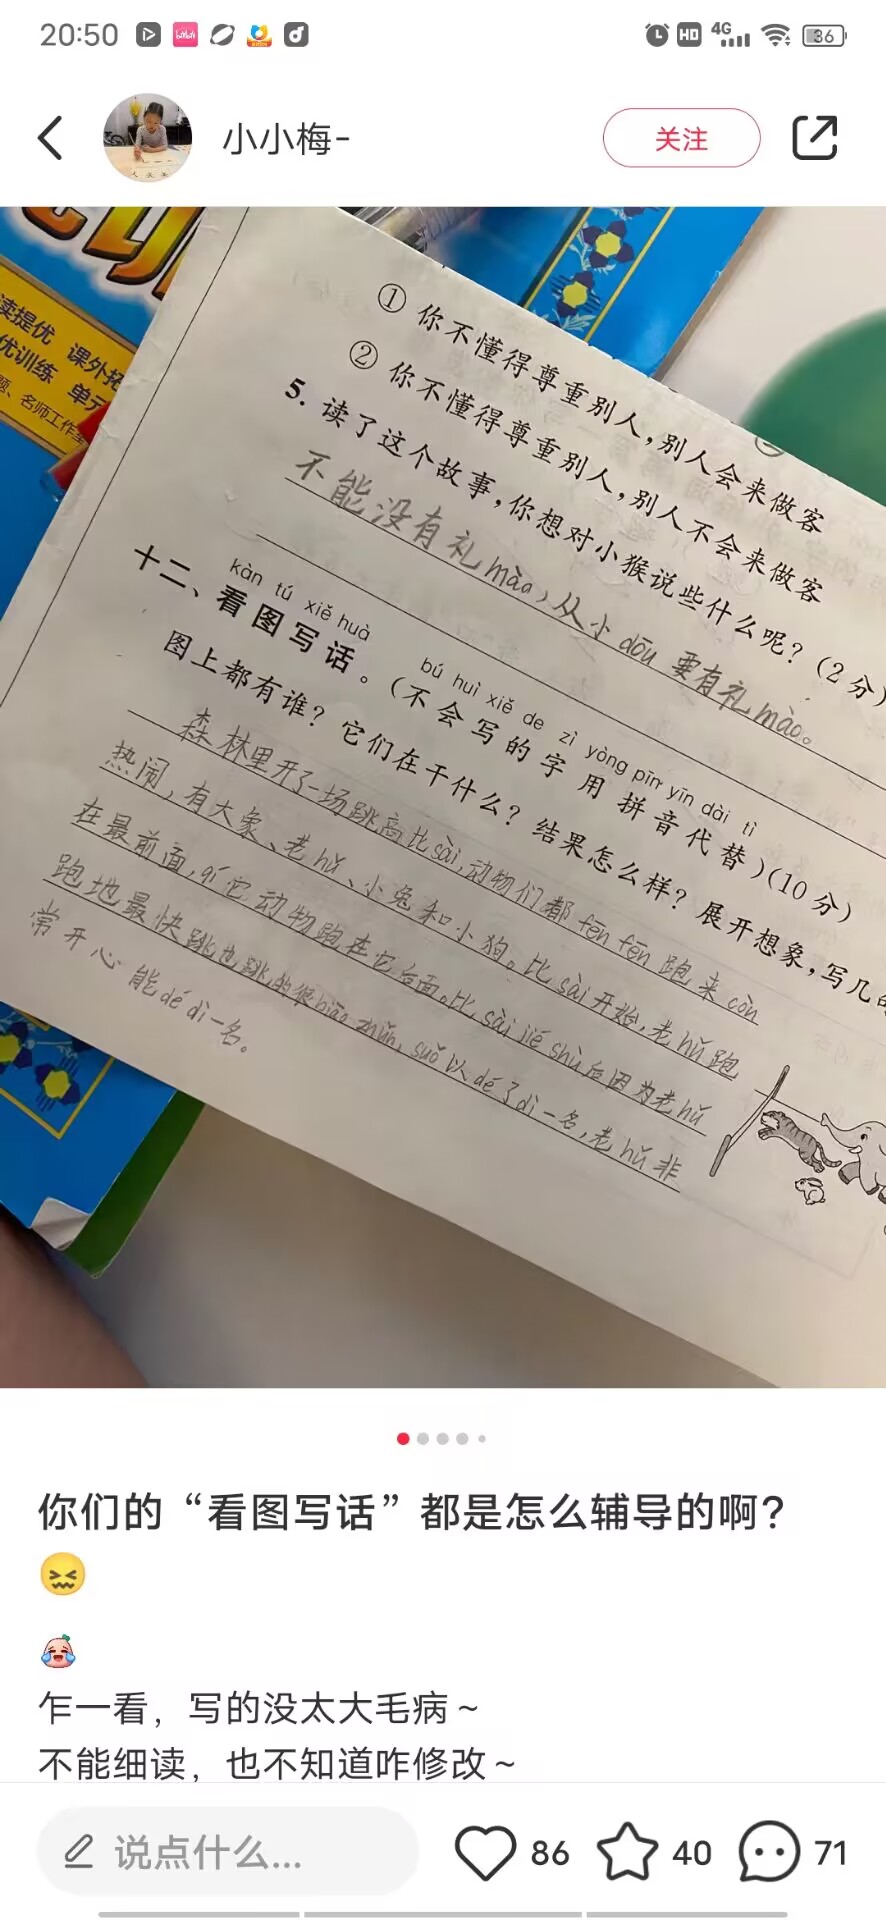 20:50
HD 4G 36
小小梅-
关注
读提优 课外拓
优训练 单元
题、名师工作室
① 你不懂得尊重别人，别人会来做客
② 你不懂得尊重别人，别人不会来做客
5. 读了这个故事，你想对小猴说些什么呢？（2分）
不能没有礼mào，从小dōu要有礼mào。
kàn tú xiě huà
十二、看图写话。（不会写的字用拼音代替）（10分）
bú huì xiě de zì yòng pīn yīn dài tì
图上都有谁？它们在干什么？结果怎么样？展开想象，写几
森林里开了一场跳高比sài，动物们都fēn fēn跑来còn
热闹，有大象、老hǔ、小兔和小狗。比sài开始，老hǔ跑
在最前面，qí它动物跑在它后面。比sài jié shù后因为老hǔ
跑地最快跳也跳的很biāo zhǔn，suǒ以dé了dì一名，老hǔ非
常开心能dé dì一名。
你们的“看图写话”都是怎么辅导的啊？
乍一看，写的没太大毛病～
不能细读，也不知道咋修改～
说点什么...
86
40
71